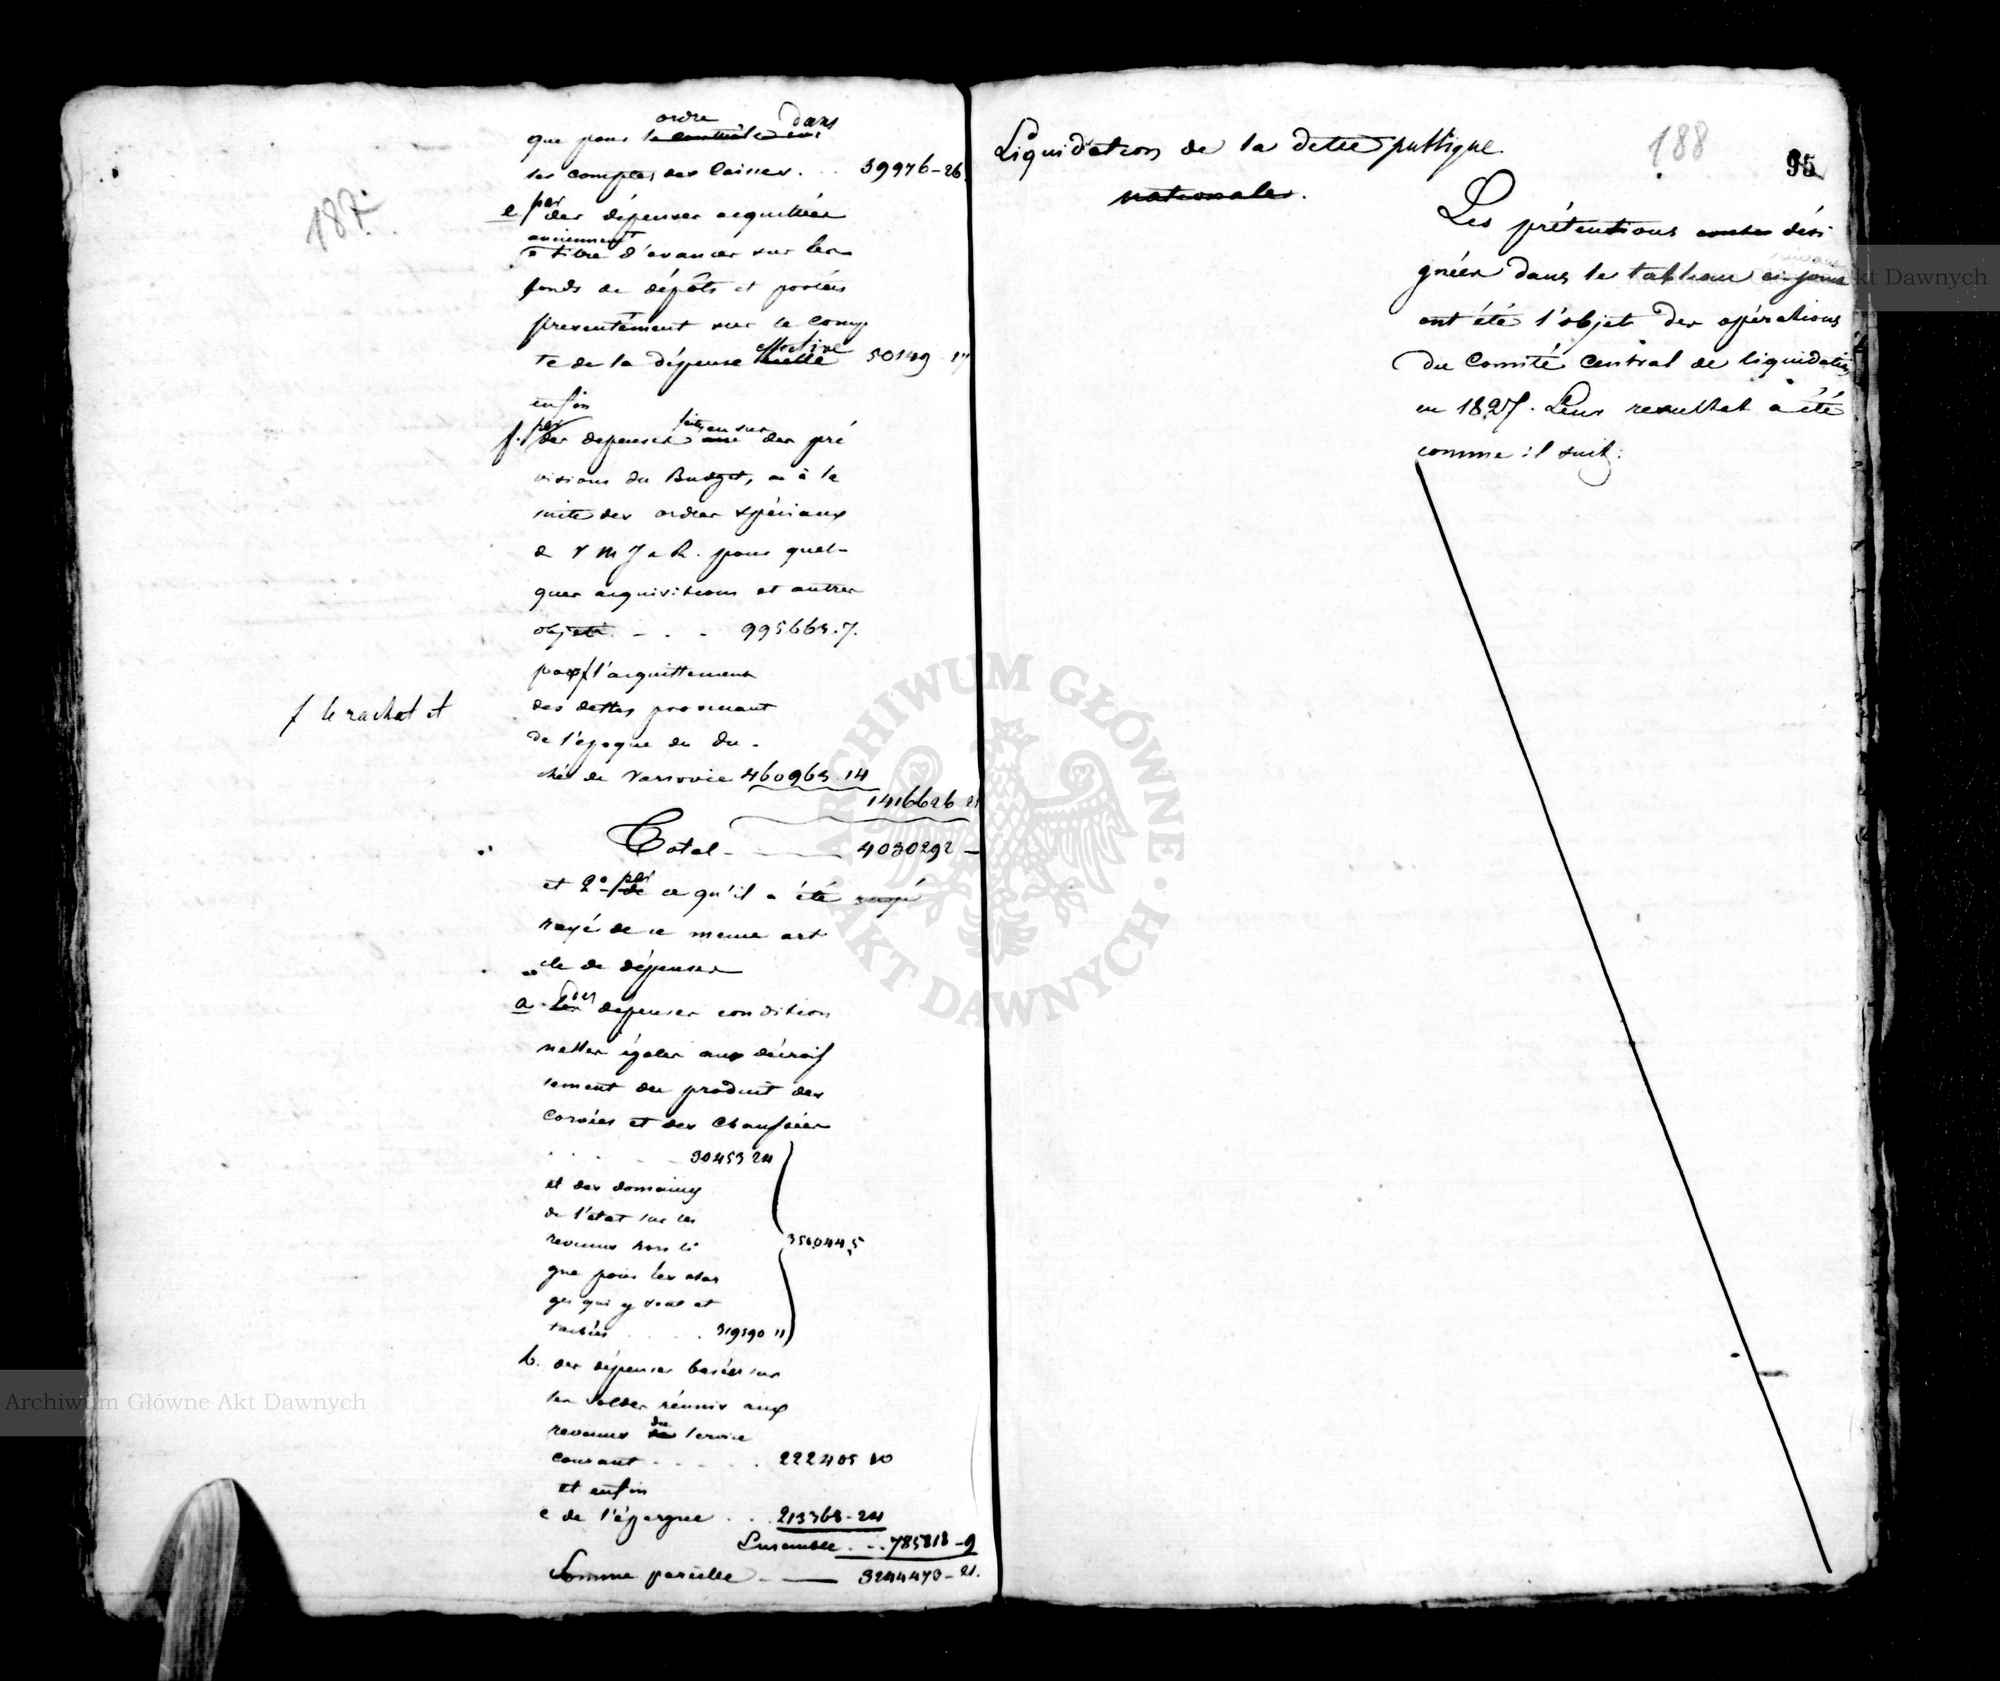 187.
ordre dans
que pour le contrôle dans
les comptes des caisses . . . 39976-26
e par des dépenses acquittées
anciennement
a titre d'avances sur les
fonds de dépôts et portées
presentement sur le comp
te de la dépense effective réelle 50149 17
enfin
f. par des depenses faites en sus des pré
visions du Budget, ou à la
suite des ordres spéciaux
de S M I e R. pour quel-
ques acquisitions et autres
objets . - . - 995663.7.
pour f l'acquittement
f le rachat et
des dettes provenant
de l'époque du Du-
ché de Varsovie 460963 14
1416626 21
Total - 4030292 -
et 2° par de ce qu'il a été
rayé de ce meme arti
cle de dépenses
a. Les des depenses condition
nelles égales aux décrois
sement du produit des
corvées et des Chaussées
30453 24
et des domaines
de l'etat sur les
revenus hors li
gne pour les char
ges qui y sont at
tachées . . . . 319590 11
350044,5
b. des dépenses basées sur
les soldes réunis aux
revenus du de service
courant - - - - . 222405 10
et enfin
c de l'épargne . . . 213368-24
Ensemble . - . 785818-9
Somme pareille - 3244473-21.
Liquidation de la dette publique
nationale.
188
95
Les prétentions dési
gnées dans le tableau ci joint
ont été l'objet des opérations
du Comité Central de liquidation
en 1827. Leur resultat a été
comme il suit:
ARCHIWUM GŁÓWNE
AKT DAWNYCH
Archiwum Główne Akt Dawnych
kt Dawnych